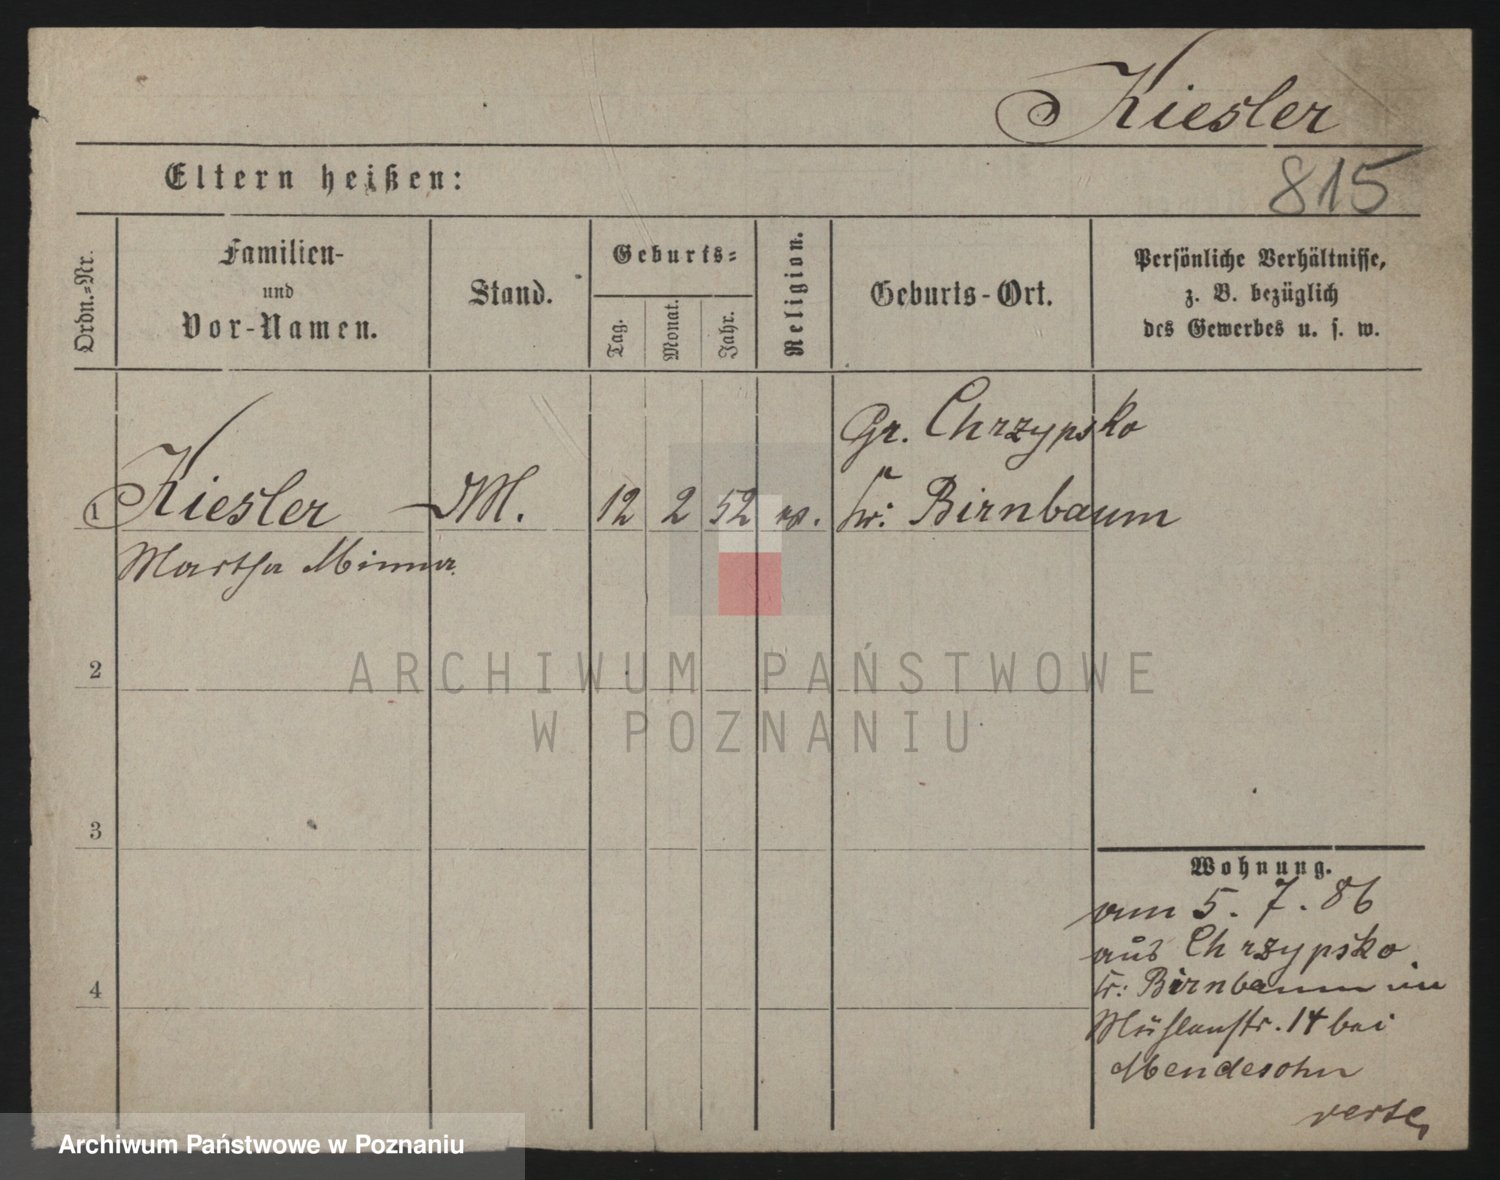 Kiesler
815
Eltern heißen:
Ordn.-Nr.
Familien-
und
Vor-Namen.
Stand.
Geburts-
Tag.
Monat.
Jahr.
Religion.
Geburts-Ort.
Persönliche Verhältnisse,
z. B. bezüglich
des Gewerbes u. s. w.
Gr. Chrzypsko
1 Kiesler M. 12 2 52 Kr. Birnbaum
Martha Minna
2
3
4
Wohnung.
am 5. 7. 86
aus Chrzypsko
Kr: Birnbaum in
Mühlenstr. 14 bei
Mendesohn
verte,
ARCHIWUM PAŃSTWOWE
W POZNANIU
Archiwum Państwowe w Poznaniu